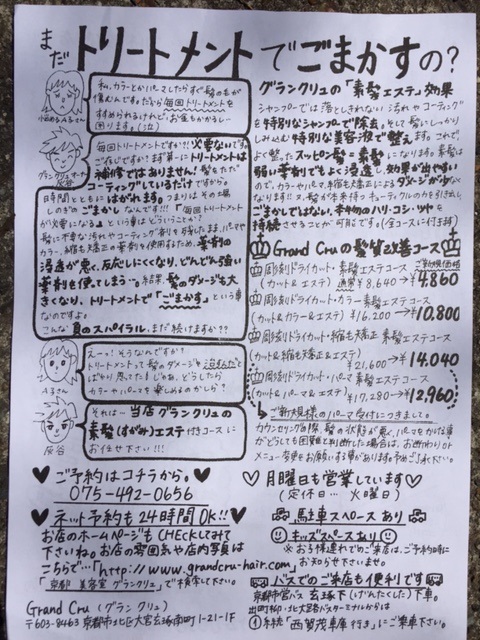 まだトリートメントでごまかすの?
私、カラーとかパーマしたらすぐ髪の毛が
傷むんです。だから毎回トリートメントを
すすめられるけれど、お金もかかるし…
困ります。(泣)
必要ないです。
ご存じですか?まず第一にトリートメントは
補修ではありません!髪をただ
コーティングしているだけですから。
時間とともにはがれます。つまりはその場
しのぎのごまかしなんです!!「毎回トリートメント
が必要になる」という事はどういうことか?
髪に不要な汚れやコーティング剤を残したまま、パーマや
カラー、縮毛矯正の薬剤を使用するため、薬剤の
浸透が悪く、反応しにくくなり、どんどん強い
薬剤を使ってしまう…。結果、髪のダメージも大
きくなり、トリートメントで「ごまかす」という事
なのですよ。
こんな負のスパイラル、まだ続けますか??
えーっ!そうなんですか?
トリートメントって髪のダメージを
ばかり思ってた!じゃあ、どうしたら
カラーやパーマを楽しめるのかしら?
それは…当店グランクリュの
素髪(すがみ)エステ付きコースに
お任せ下さい!!!
灰谷
グランクリュの「素髪エステ」効果
シャンプーでは落としきれない汚れやコーティング
を特別なシャンプーで除去。そして髪にしっかり
しみ込む特別な美容液で整えます。これで、
よく整ったスッピン髪=素髪になります。素髪は
弱い薬剤でもよく浸透し、効果が出やすい
ので、カラーやパーマ、縮毛矯正によるダメージが少なく
なります!!又、髪が本来持つキューティクルの力を引き出し、
ごまかしではない、本物のハリ・コシ・ツヤを
持続させることが可能です。(全コースに付きます)
Grand Cruの髪質改善コース
ご新規価格
彫刻ドライカット・素髪エステコース
(カット&エステ) 通常¥8,640→¥4,860
彫刻ドライカット・カラー素髪エステコース
(カット&カラー&エステ) ¥16,200→¥10,800
彫刻ドライカット・縮毛矯正 素髪エステコース
(カット&縮毛矯正&エステ) ¥21,600→¥14,040
彫刻ドライカット・パーマ素髪エステコース
(カット&パーマ&エステ) ¥17,280→¥12,960
ご新規様のパーマ受付につきまして。
カウンセリングの際、髪の状態が悪く、パーマをかける事
がどうしても困難と判断した場合は、お断わりor
メニュー変更をお願いする事があります。予めご了承下さい。
ご予約はコチラから。
075-492-0656
ネット予約も24時間OK!!
お店のホームページもCHECKしてみて
下さいね。お店の雰囲気や店内写真は
こちらで…「http://www.grandcru-hair.com」
「京都 美容室 グランクリュ」で検索して下さい。
Grand Cru (グランクリュ)
〒603-8463 京都市北区大宮玄琢南町1-21-1F
月曜日も営業しています
(定休日… 火曜日)
駐車スペースあり
キッズスペースあり
※お子様連れでのご来店は、ご予約時に
お知らせ下さいませ。
バスでのご来店も便利です
京都市営バス 玄琢下(げんたくした)下車。
出町柳・北大路バスターミナルからは
①系統「西賀茂車庫行き」にご乗車下さい。